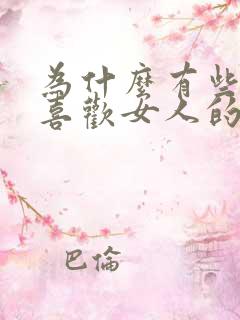 為什麼有些
喜歡女人的
巴倫